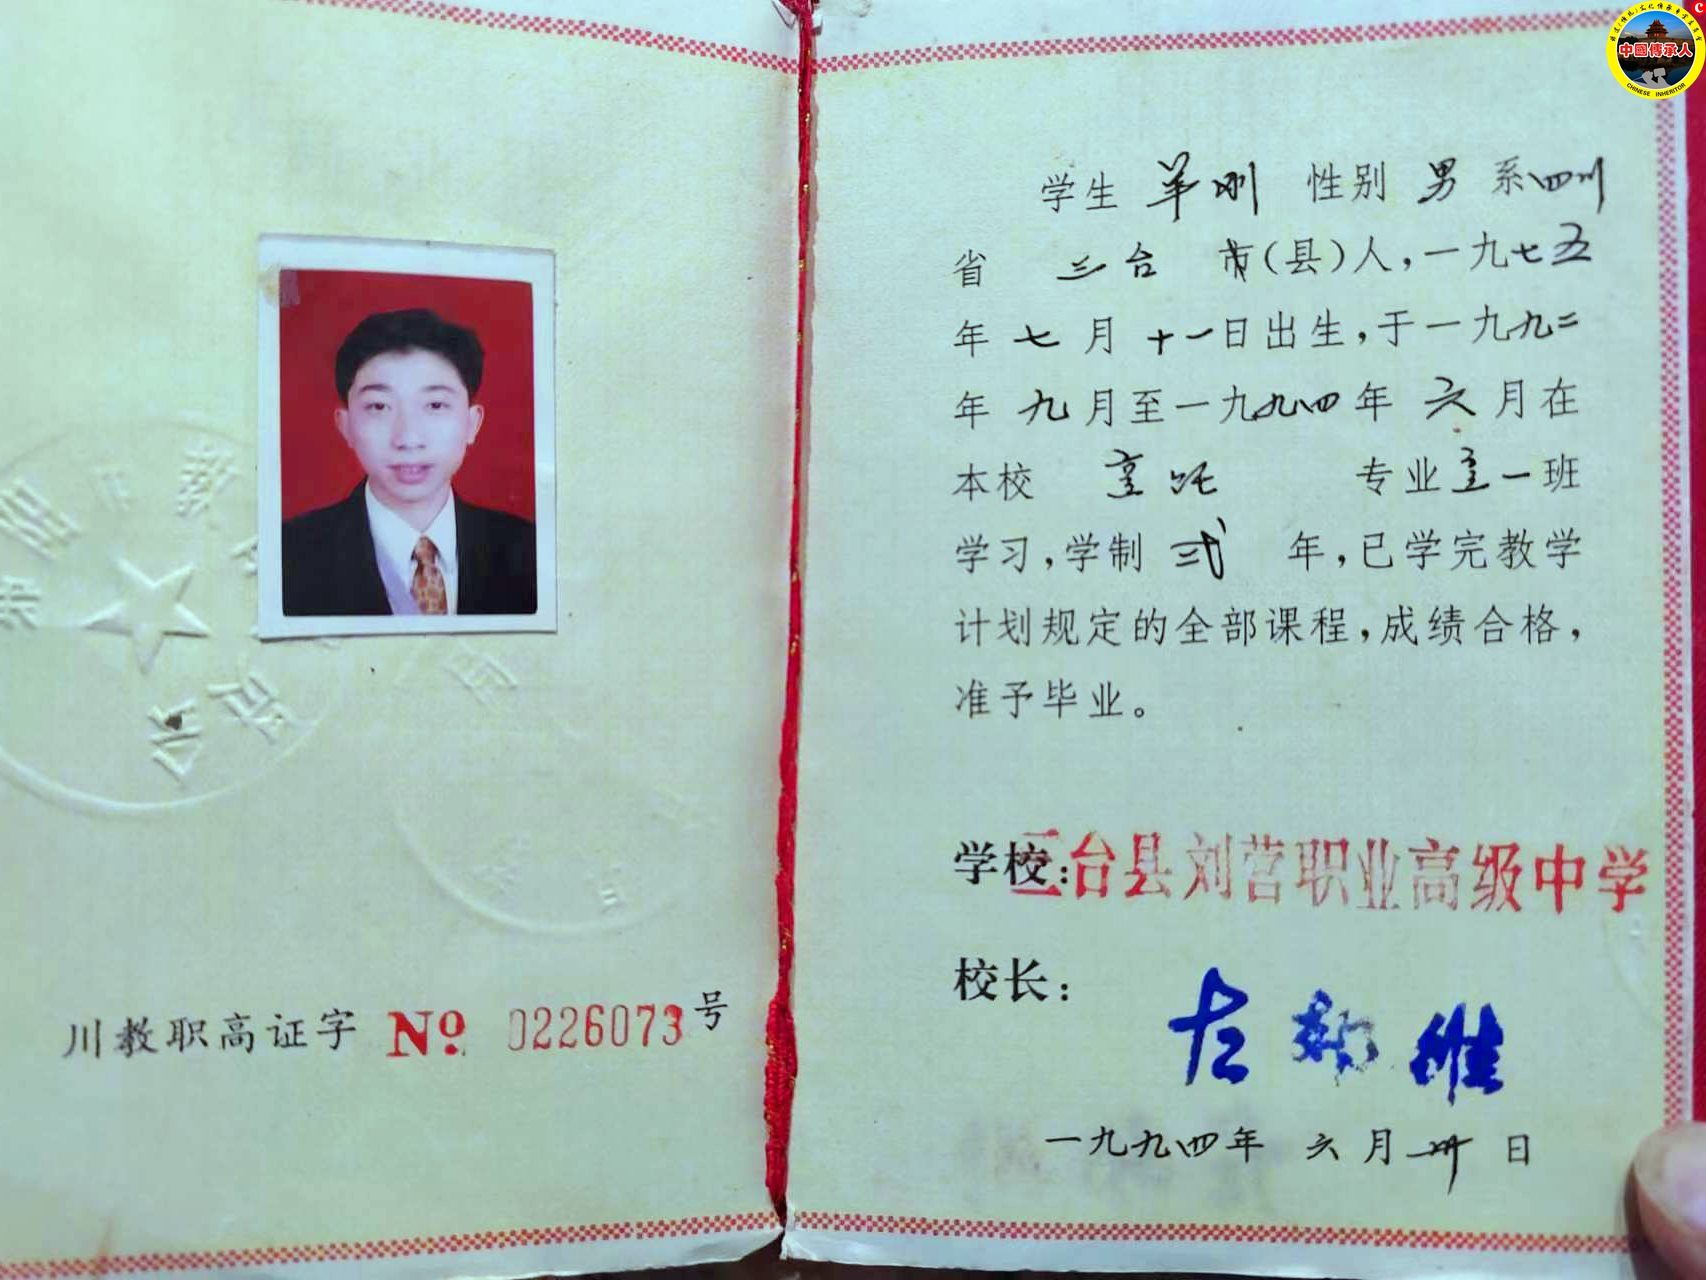 中國傳承人
CHINESE INHERITOR
川教职高证字 No. 0226073 号
学生 羊刚 性别 男 系四川
省 三台 市(县)人,一九七五
年 七 月 十一日出生,于一九九二
年 九 月至一九九四年 六 月在
本校 专业 一班
学习,学制 弍 年,已学完教学
计划规定的全部课程,成绩合格,
准予毕业。
学校:三台县刘营职业高级中学
校长:
一九九四年 六 月 卅 日